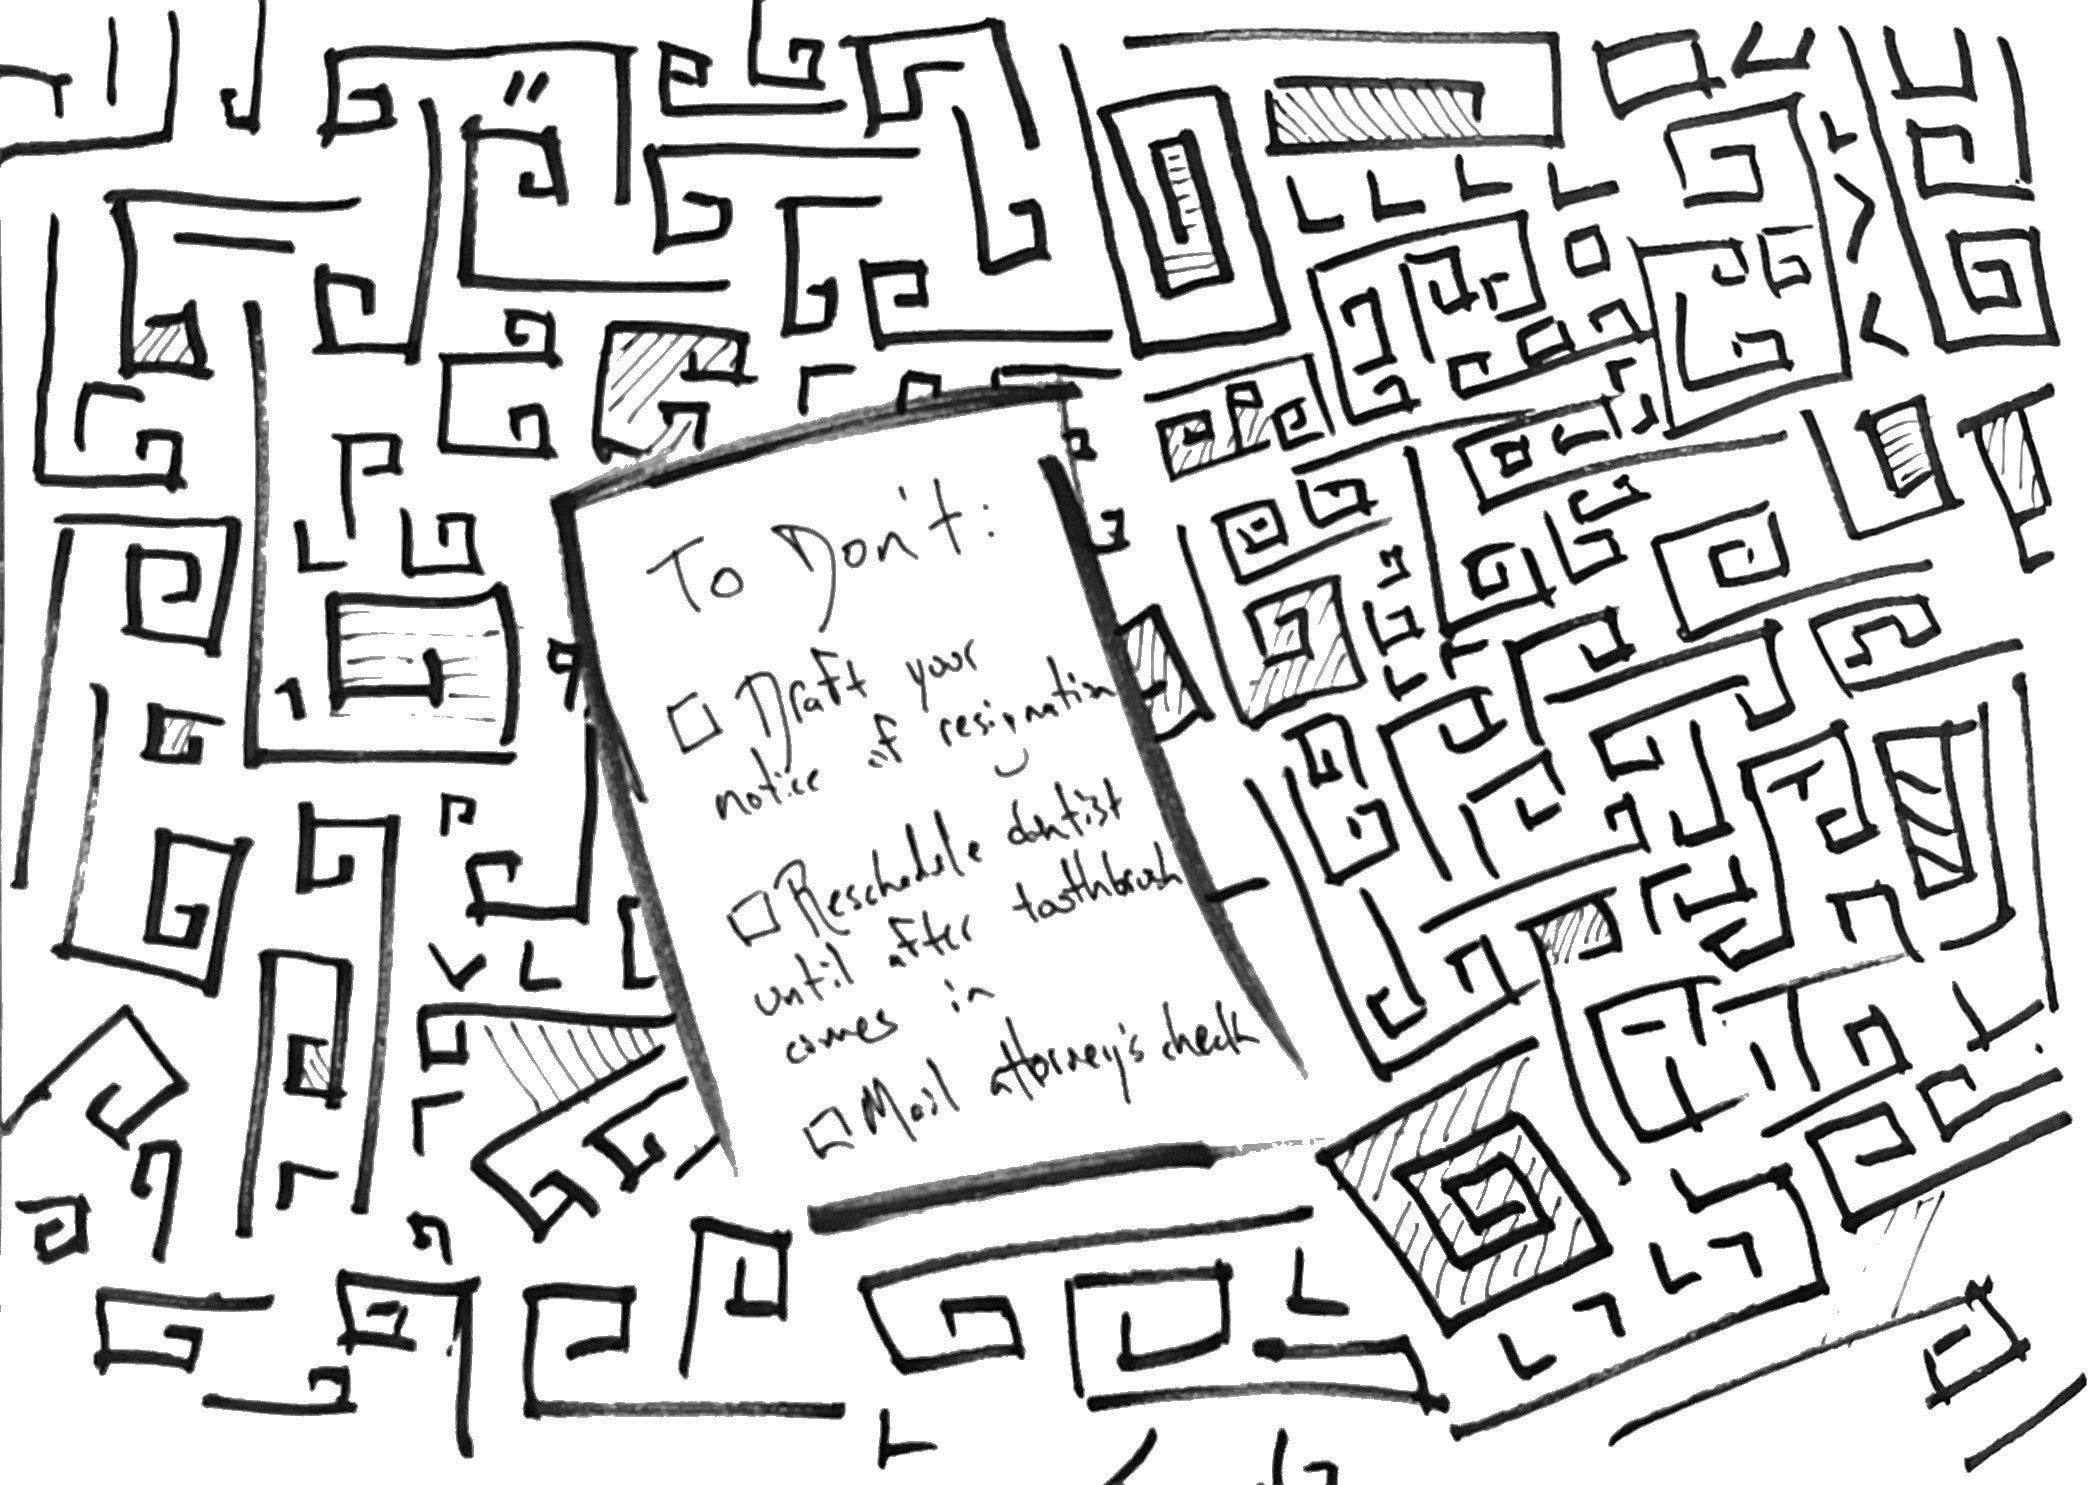 To Don't:
Draft your
notice of resignation
Reschedule dentist
until after toothbrush
comes in
Mail attorney's check